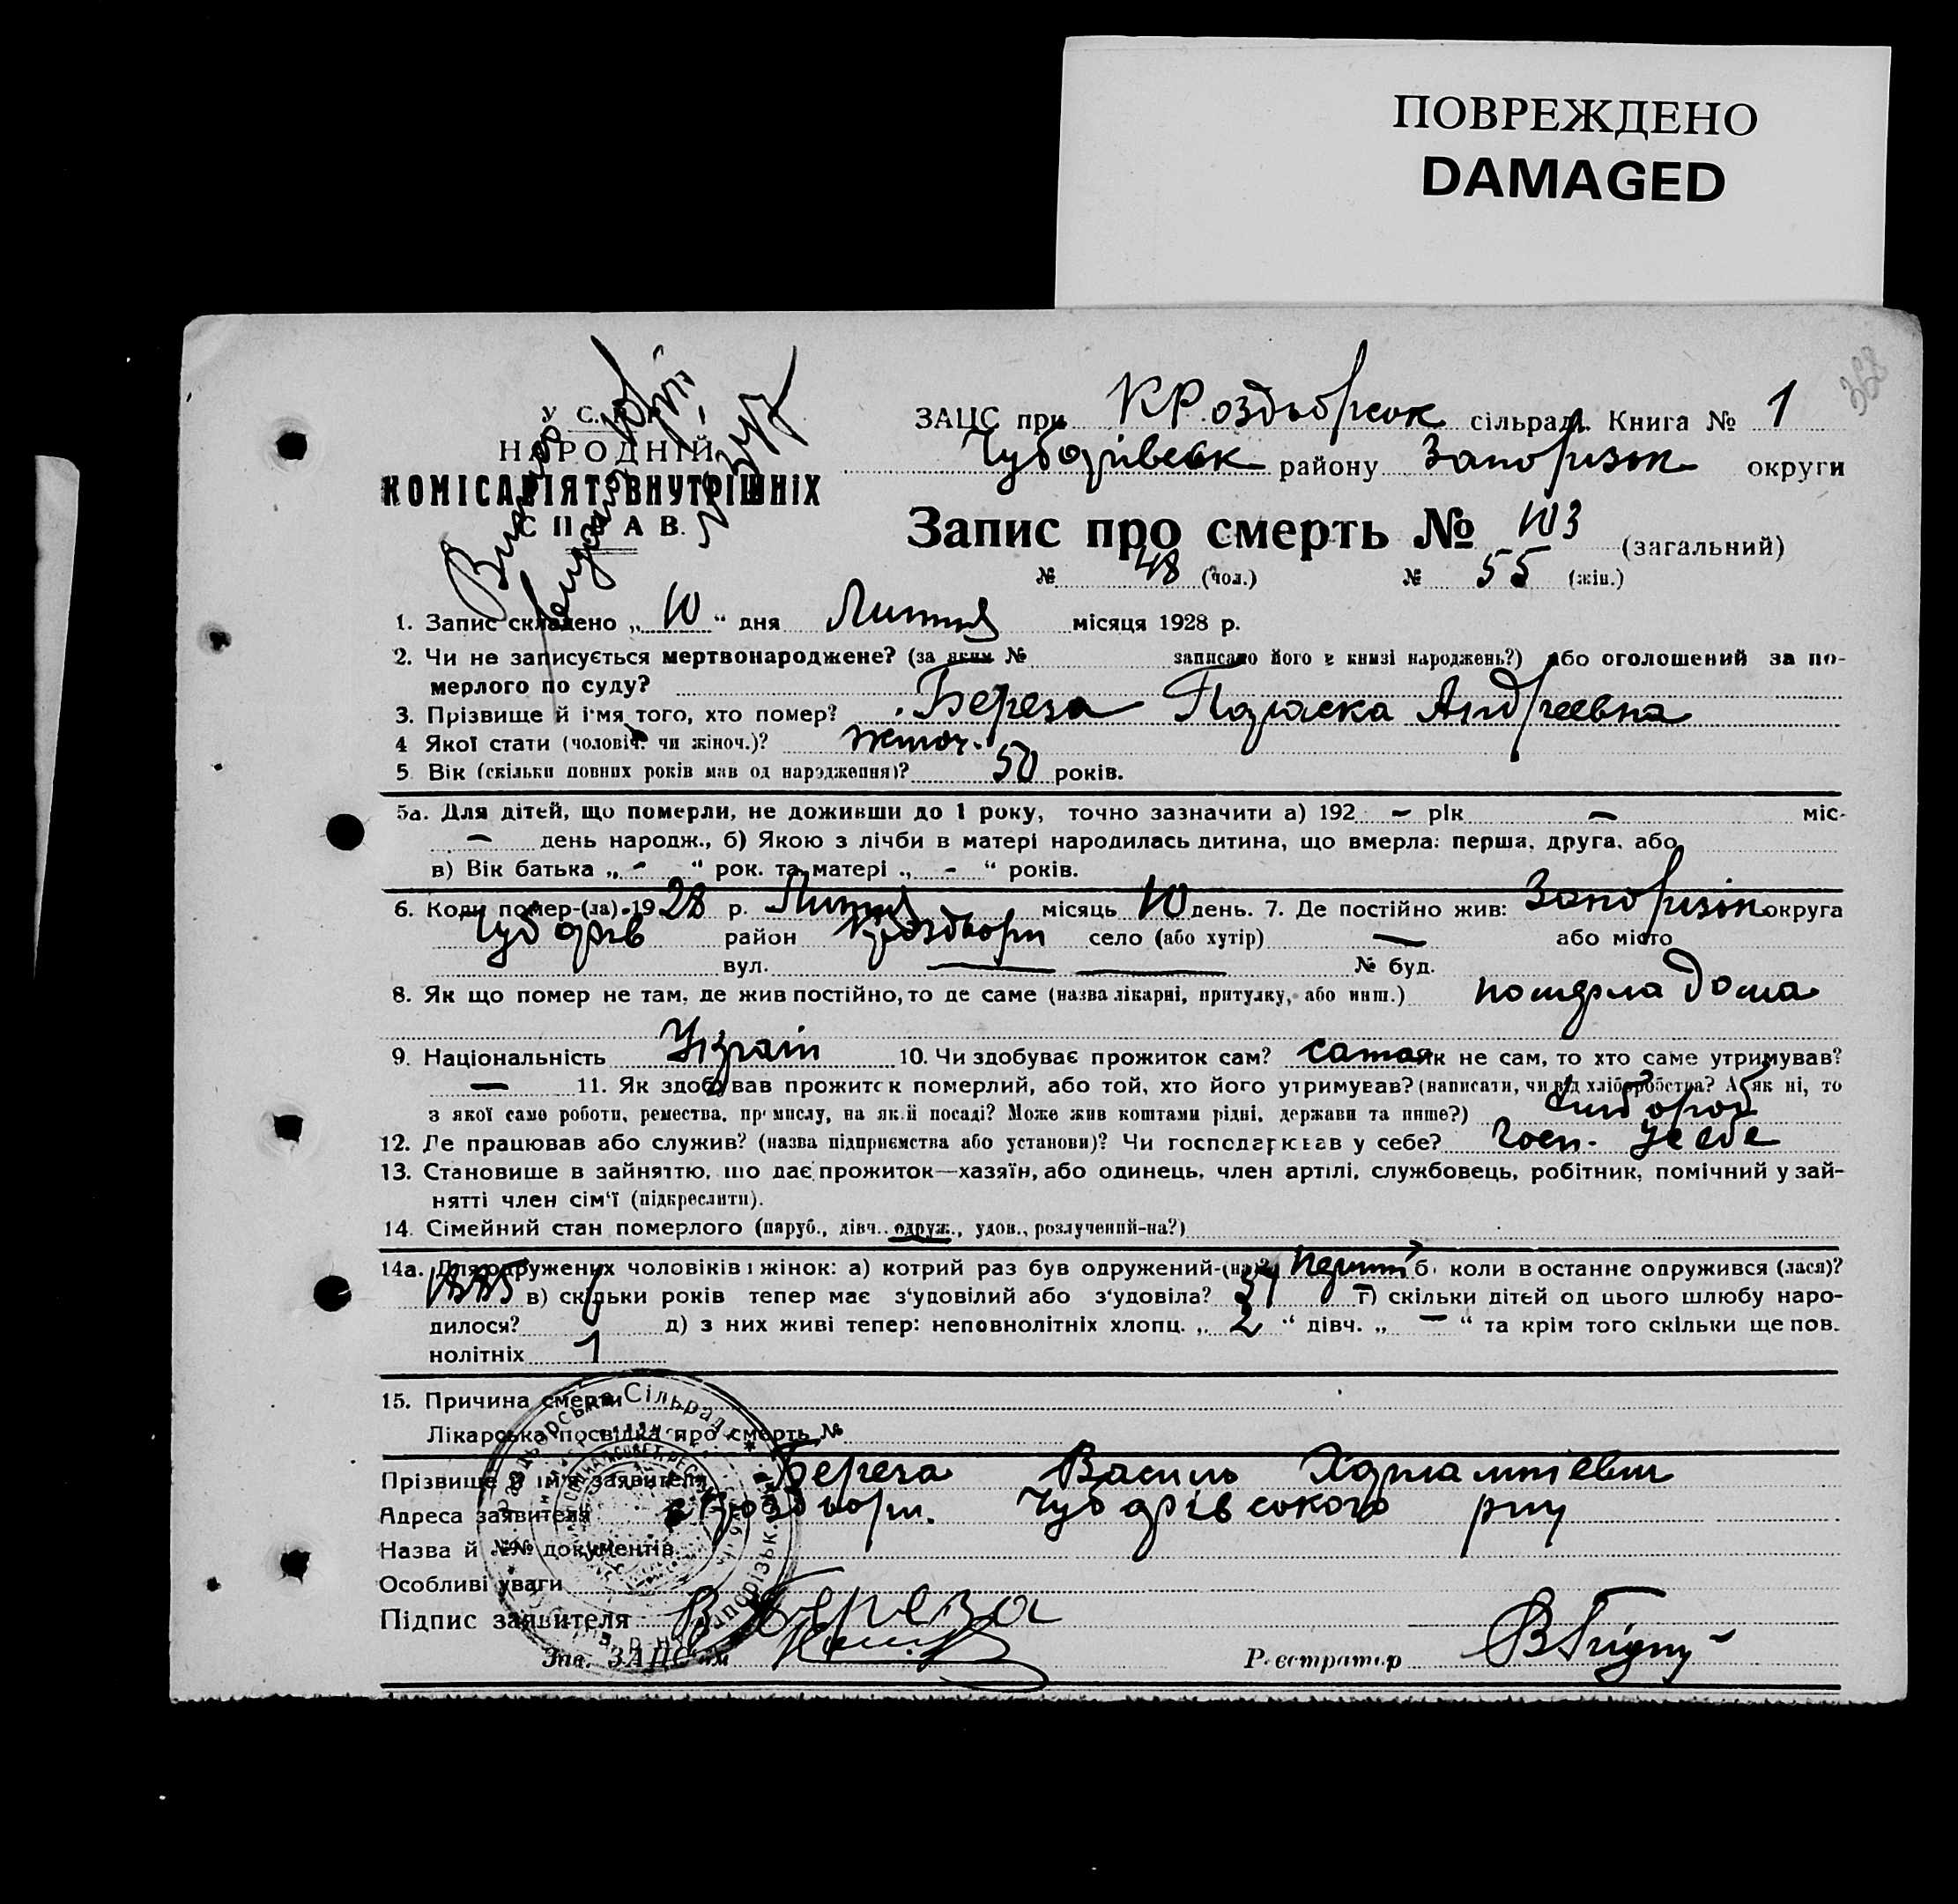 ПОВРЕЖДЕНО
DAMAGED
368
У. С.
НАРОДНІЙ
КОМІСАРІЯТ ВНУТРІШНІХ
СПРАВ.
ЗАЦС при КРоздорськ сільраді. Книга № 1
Чубарівськ району Запорізьк округи
Запис про смерть № 103 (загальний)
№ 48 (чол.) № 55 (жін.)
1. Запис складено „10“ дня Липня місяця 1928 р.
2. Чи не записується мертвонароджене? (за яким № записано його в книзі народжень?) або оголошений за по-
мерлого по суду?
3. Прізвище й імя того, хто помер? Береза Параска Андреевна
4 Якої стати (чоловіч. чи жіноч.)? жіноч.
5 Вік (скільки повних років мав од народження)? 50 років.
5а. Для дітей, що померли, не доживши до 1 року, точно зазначити а) 192 – рік – міс-
– день народж., б) Якою з лічби в матері народилась дитина, що вмерла: перша, друга, або
в) Вік батька „ - “ рок. та матері „ - “ років.
6. Коли помер-(ла) 1928 р. Липня місяць 10 день. 7. Де постійно жив: Запорізьк округа
Чубарів район село (або хутір) — або місто
вул. — — № буд.
8. Як що помер не там, де жив постійно, то де саме (назва лікарні, притулку, або инш.) померла дома
9. Національність Україн 10. Чи здобуває прожиток сам? сама як не сам, то хто саме утримував?
— 11. Як здобував прожиток померлий, або той, хто його утримував? (написати, чи від хліборобства? А як ні, то
з якої само роботи, ремества, промислу, на якій посаді? Може жив коштами рідні, держави та инше?)
12. Де працював або служив? (назва підприємства або установи)? Чи господарював у себе? Госп. у себе
13. Становище в зайняттю, що дає прожиток—хазяїн, або одинець, член артілі, службовець, робітник, помічний у зай-
нятті член сім'ї (підкреслити).
14. Сімейний стан померлого (паруб., дівч., одруж., удов., розлучений-на?)
14а. Для одружених чоловіків і жінок: а) котрий раз був одружений-(на)? перший б) коли востаннє одружився (лася)?
в) скільки років тепер має з'удовілий або з'удовіла? г) скільки дітей од цього шлюбу наро-
дилося? 6 д) з них живі тепер: неповнолітніх хлопц. „ 2 “ дівч. „ – “ та крім того скільки ще пов.
нолітніх 1
15. Причина смерти
Лікарська посвідка про смерть №
Прізвище й ім'я заявителя Береза Василь Харлампіевич
Адреса заявителя Чубарівського рну
Назва й №№ документів.
Особливі уваги
Підпис заявителя В Береза
Зав. ЗАЦС'ом
Реєстратор